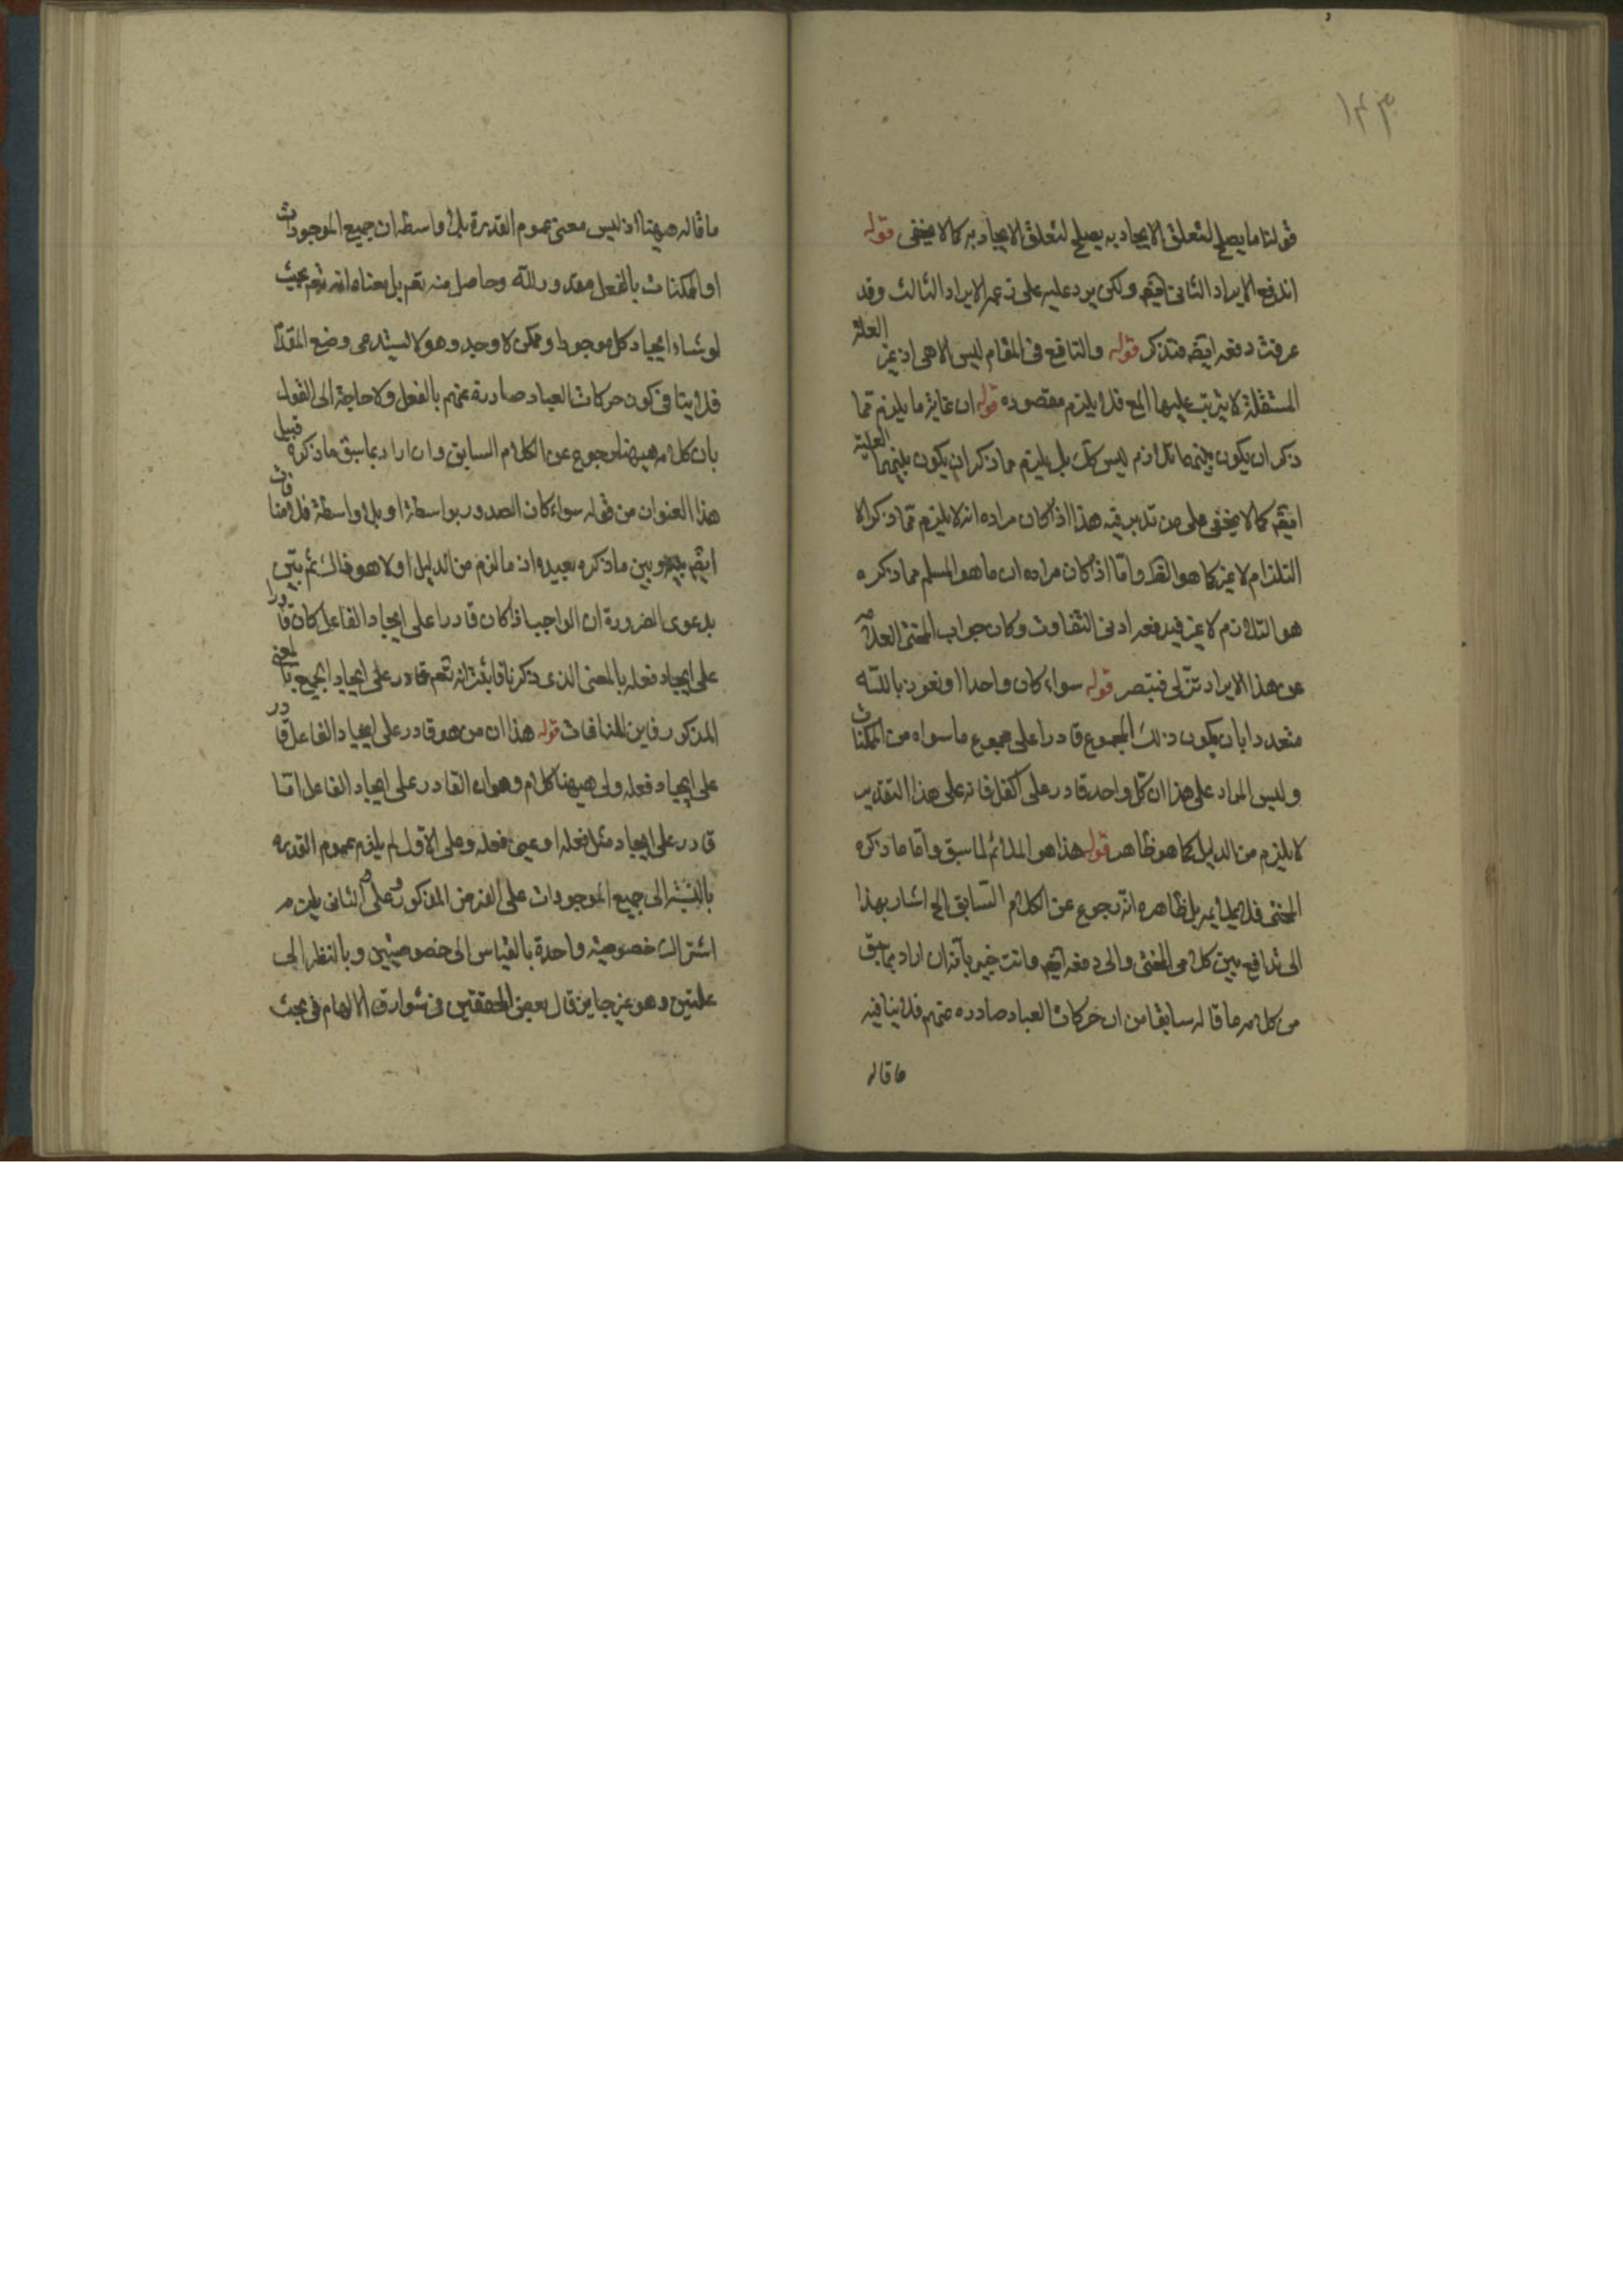 ١٤٣
قولنا ما يصلح لتعلق الايجاد به يصلح لتعلق الايجاد به كما لا يخفى قوله
اندفع الايراد الثانى ايضم ولكن يرد عليه على زعمه الايراد الثالث وقد
عرفت دفعه ايضم فتذكر قوله والنافع فى المقام ليس الا هى اذ غير العلة
المستقلة لا يترتب عليها الخ فلا يلزم مقصوده قوله ان غاية ما يلزم مما
ذكر ان يكون بينهما تلازم ليس كك بل يلزم مما ذكر ان يكون بينهما العلية
ايضم كما لا يخفى على من تدبر فيه هذا اذا كان مراده انه لا يلزم مما ذكر الا
التلازم لا غير كما هو الظ واما اذا كان مراده ان ما هو المسلم مما ذكره
هو التلازم لا غير فيدفعه ادنى التفاوت وكان جواب المحشى العلامه
عن هذا الايراد تنزلى فتبصر قوله سواء كان واحدا او نعوذ بالله
متعددا بان يكون ذلك المجموع قادرا على مجموع ما سواه من الممكنات
وليس المراد على هذا ان كل واحد قادر على الكل فانه على هذا التقدير
لا يلزم من الدليل كما هو ظاهر قوله هذا هو الملائم لما سبق واما ما ذكره
المحشى فلا يلايمه بل ظاهره انه رجوع عن الكلام السابق الخ اشار بهذا
الى تدافع بين كلامى المحشى والى دفعه ايضم وانت خبير بانه ان اراد بما سبق
من كلامه ما قاله سابقا من ان حركات العباد صادره عنهم فلا ينافيه
ما قاله
ما قاله ههنا اذ ليس معنى عموم القدرة بلا واسطه ان جميع الموجودات
او الممكنات بالفعل مقدور لله وحاصل منه تعم بل معناه انه تعم بحيث
لو شاء ايجاد كل موجود او ممكن لاوجده وهو لا يستدعى وضع المقدم
فلا ينافى كون حركات العباد صادرة عنهم بالفعل ولا حاجة الى القول
بان كلامه ههنا رجوع عن الكلام السابق وان اراد بما سبق ما ذكره قبيل
هذا العنوان من قوله سواء كان الصدور بواسطة او بلا واسطة فلا منافات
ايضم بينه وبين ما ذكره بعيده اذ ما لزم من الدليل اولا هو ذاك ثم بين
بدعوى الضرورة ان الواجب اذا كان قادرا على ايجاد الفاعل كان قادرا
على ايجاد فعله بالمعنى الذى ذكرنا فاثبت انه تعم قادر على ايجاد الجميع بالمعنى
المذكور فاين المنافات قوله هذا ان من هو قادر على ايجاد الفاعل قادر
على ايجاد فعله ولى ههنا كلام وهو ان القادر على ايجاد الفاعل اما
قادر على ايجاد مثل فعله او عين فعله وعلى الاول لم يلزم عموم القدره
بالنسبة الى جميع الموجودات على الفرض المذكور وعلى الثانى يلزم
اشتراك خصوصية واحدة بالقياس الى خصوصيتين وبالنظر الى
علتين وهو غير جايز قال بعض المحققين فى شوارق الالهام فى بحث